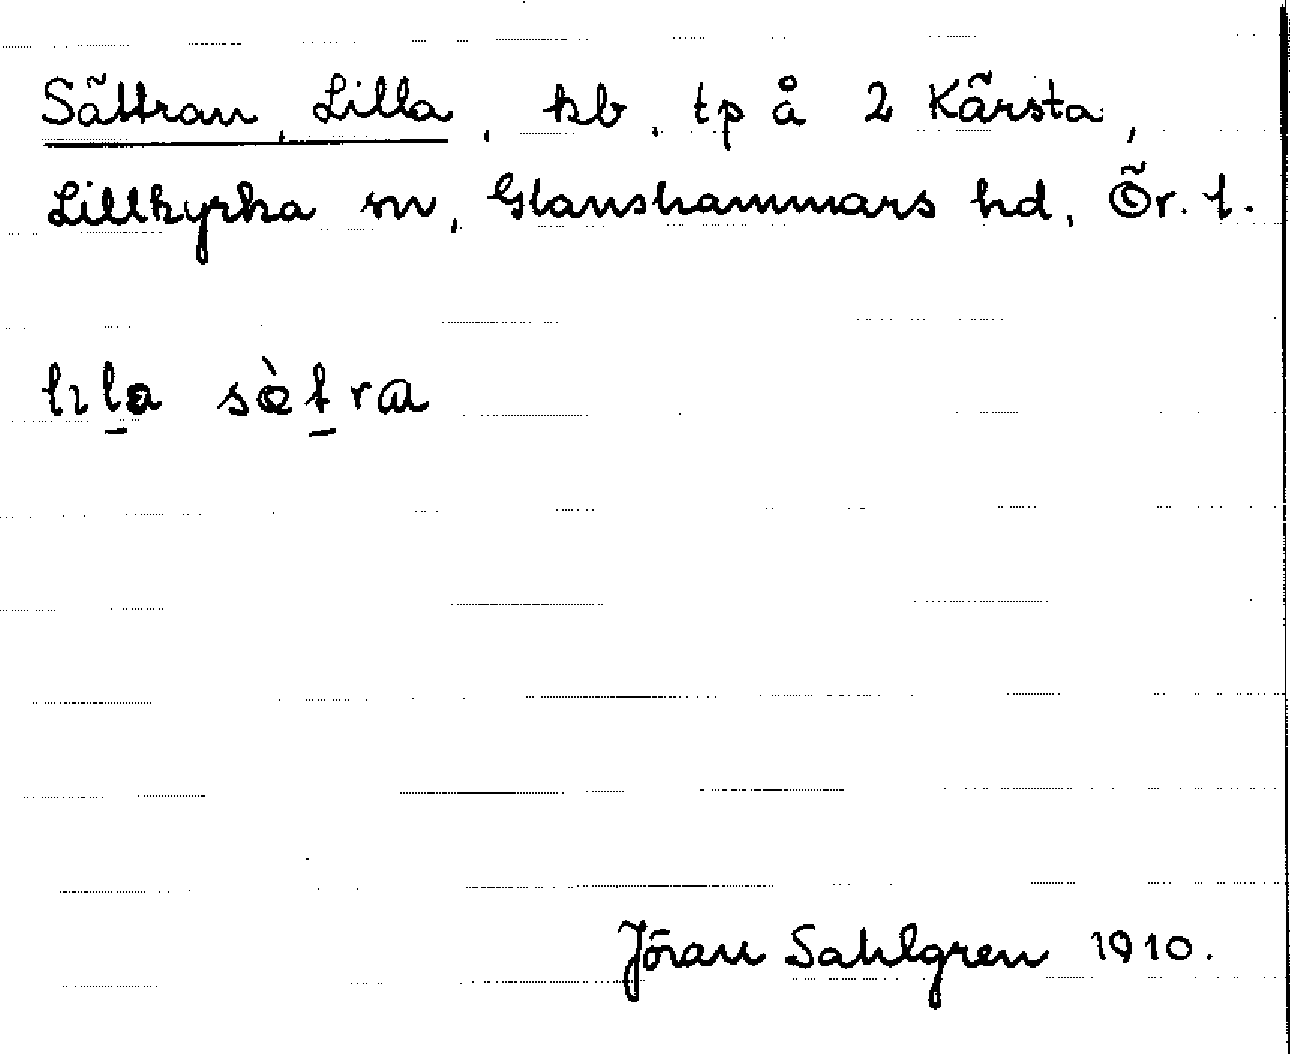 Sättran, Lilla, hb. tp å 2 Kärsta,
Lillkyrka sn, Glanshammars hd, Ör. l.
lıl̠a sὰt̠ra
Jöran Sahlgren 1910.